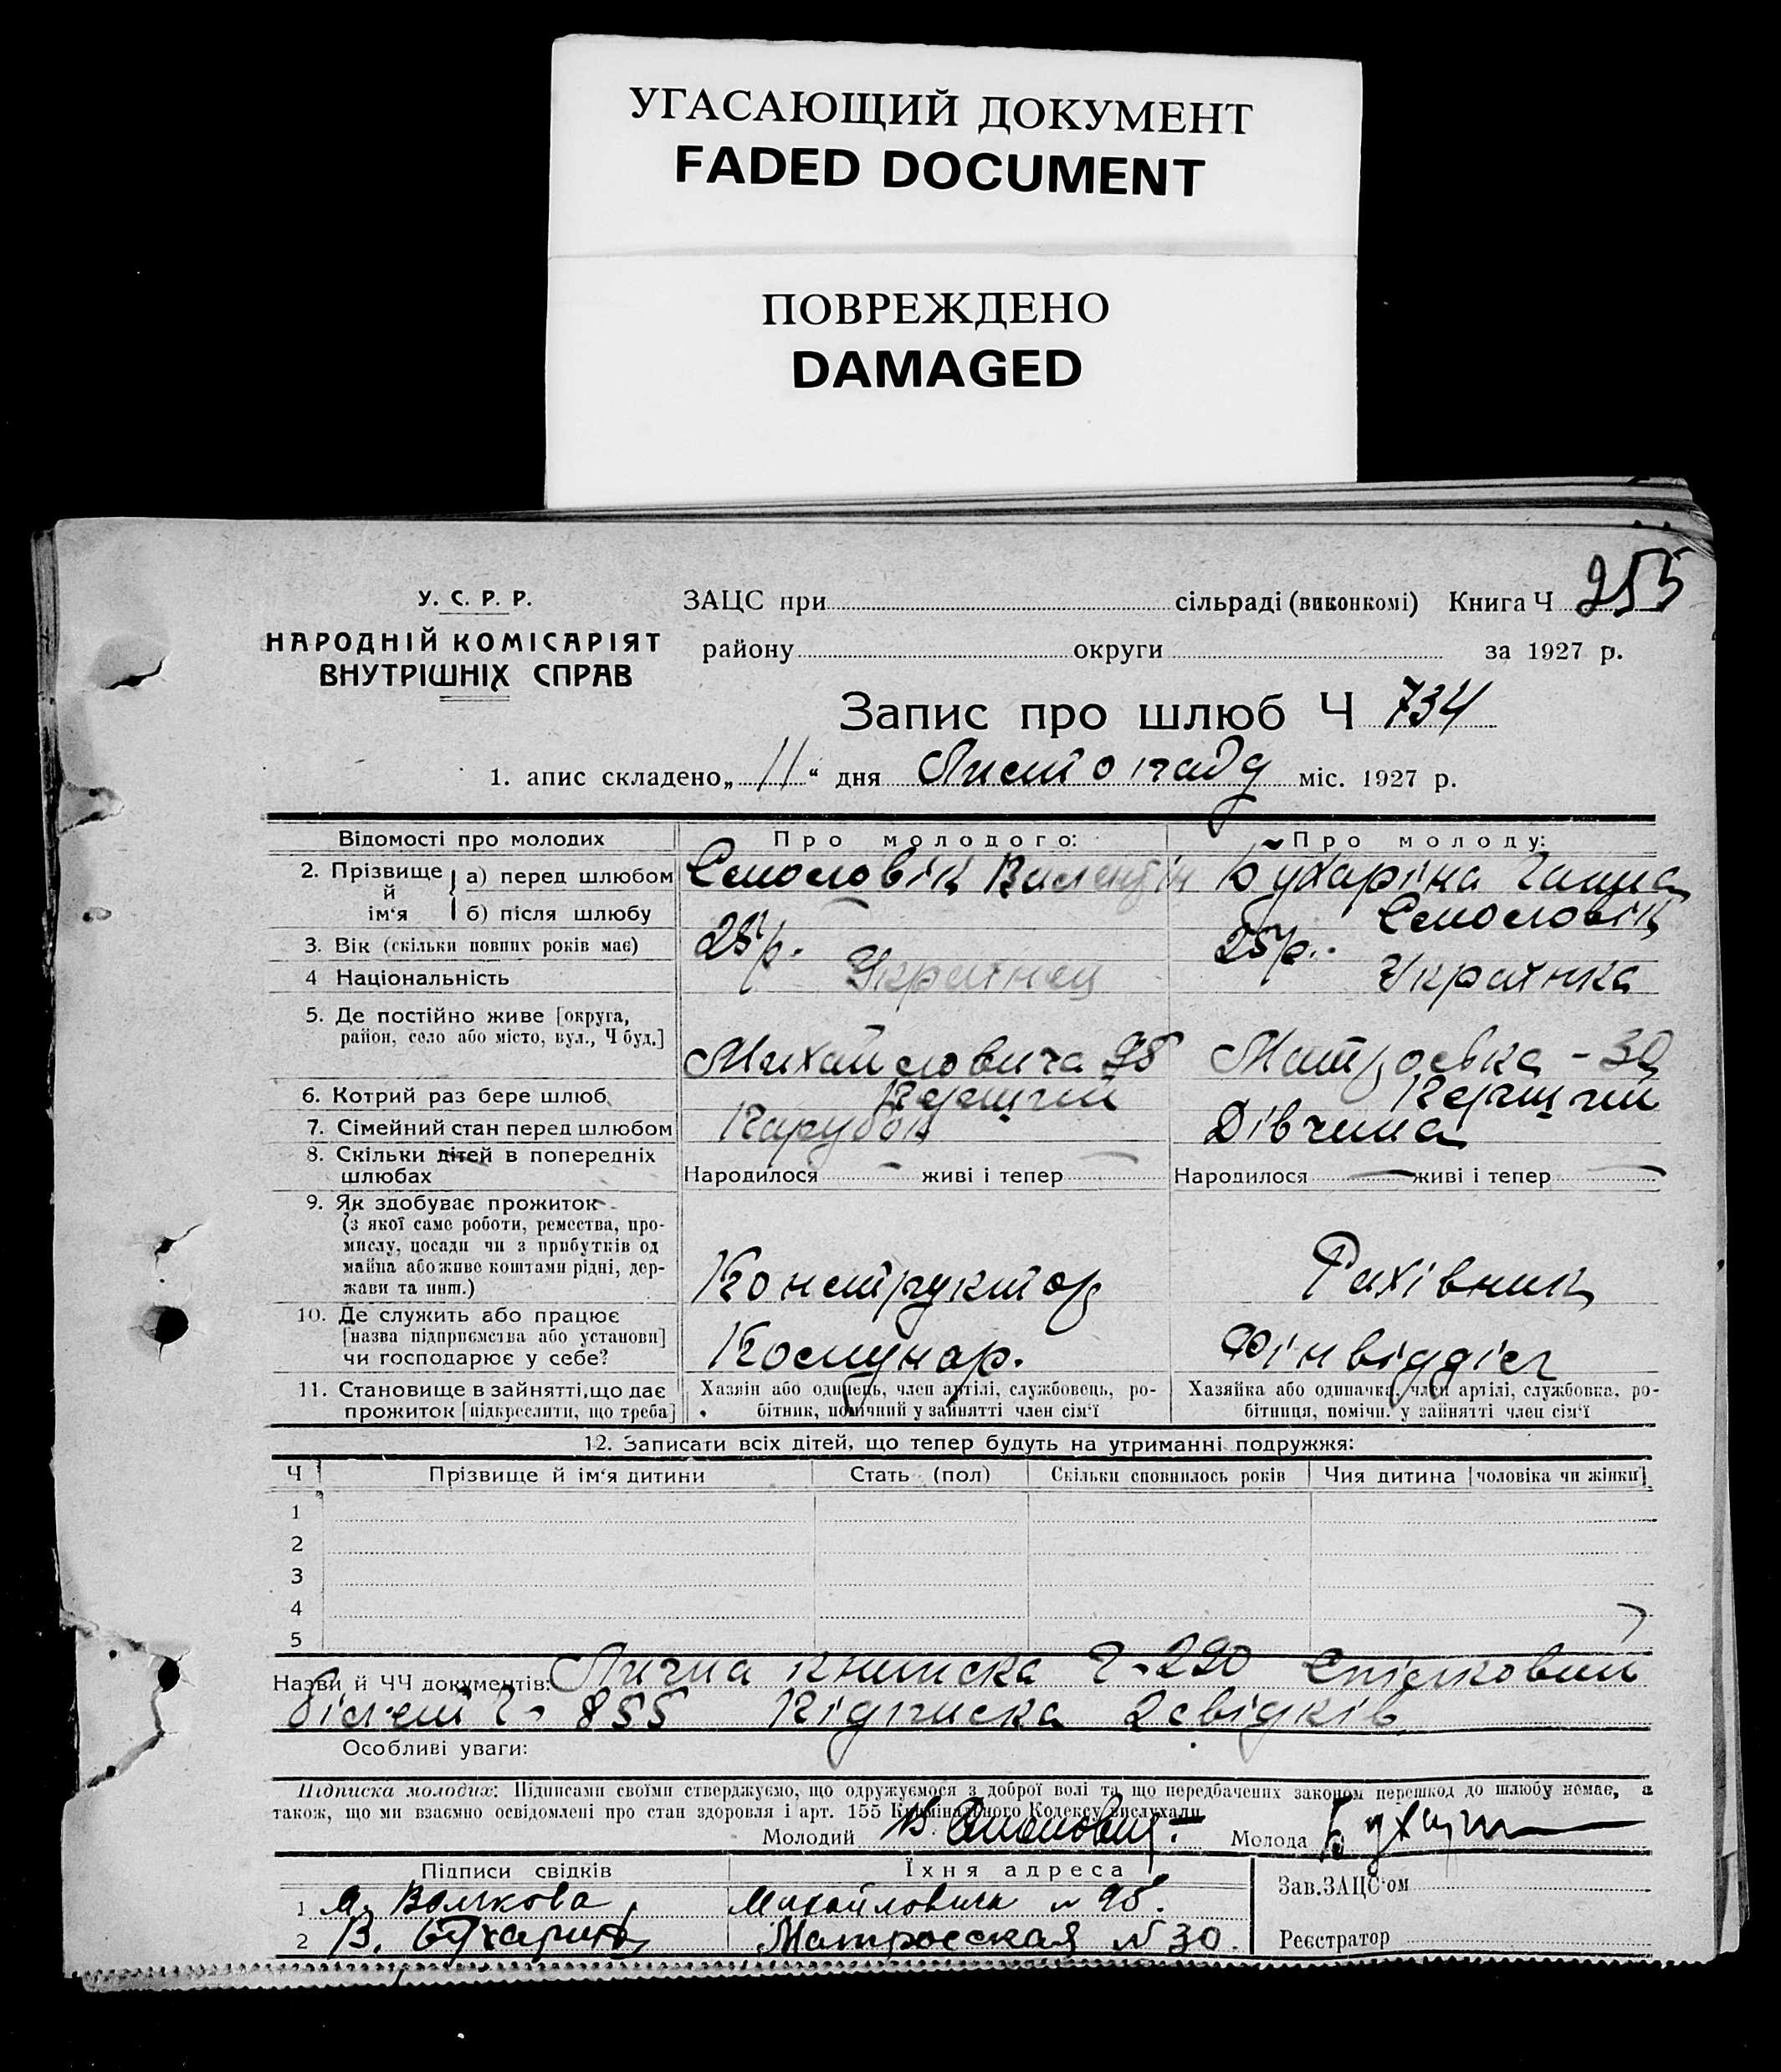 УГАСАЮЩИЙ ДОКУМЕНТ
FADED DOCUMENT
ПОВРЕЖДЕНО
DAMAGED
255
У. С. Р. Р.
НАРОДНІЙ КОМІСАРІЯТ
ВНУТРІШНІХ СПРАВ
ЗАЦС при сільраді (виконкомі) Книга Ч
району округи за 1927 р.
Запис про шлюб Ч 734
1. апис складено „ 11 “ дня Листопаду міс. 1927 р.
Відомості про молодих Про молодого: Про молоду:
2. Прізвище й ім‘я а) перед шлюбом Валентін Бухаріна Ганна
б) після шлюбу
3. Вік (скільки повних років має) 25 р. 25 р.
4 Національність Украінец Украінка
5. Де постійно живе [округа,
район, село або місто, вул., Ч буд.] Михайловича 98 Матроська - 30
6. Котрий раз бере шлюб Перший Перший
7. Сімейний стан перед шлюбом Парубок Дівчина
8. Скільки дітей в попередніх
шлюбах Народилося — живі і тепер — Народилося — живі і тепер —
9. Як здобуває прожиток
(з якої саме роботи, ремества, про-
мислу, посади чи з прибутків од
майна або живе коштами рідні, дер-
жави та инш.) Конструктор Рахівник
10. Де служить або працює
[назва підприємства або установи]
чи господарює у себе? Комунар. Фінвідділ
11. Становище в зайнятті, що дає Хазяїн або одинець, член артілі, службовець, ро- Хазяйка або одиначка, член артілі, службовка, ро-
прожиток [підкреслити, що треба] бітник, помічний у зайнятті член сім‘ї бітниця, помічн. у зайнятті член сім‘ї
12. Записати всіх дітей, що тепер будуть на утриманні подружжя:
Ч Прізвище й ім‘я дитини Стать (пол) Скільки сповнилось років Чия дитина [чоловіка чи жінки]
1
2
3
4
5
Назви й ЧЧ документів: Лична книжка Ч-290 Спілковий
білет Ч- 855 Підписка 2 свідків
Особливі уваги:
Підписка молодих: Підписами своїми стверджуємо, що одружуємося з доброї волі та що передбачених законом перешкод до шлюбу немає, а
також, що ми взаємно освідомлені про стан здоровля і арт. 155 Кримінального Кодексу вислухали
Молодий Молода
Підписи свідків Їхня адреса Зав. ЗАЦС‘ом
1 Волкова Михайловича № 98.
2 В. Бухарин Матросская № 30. Реєстратор